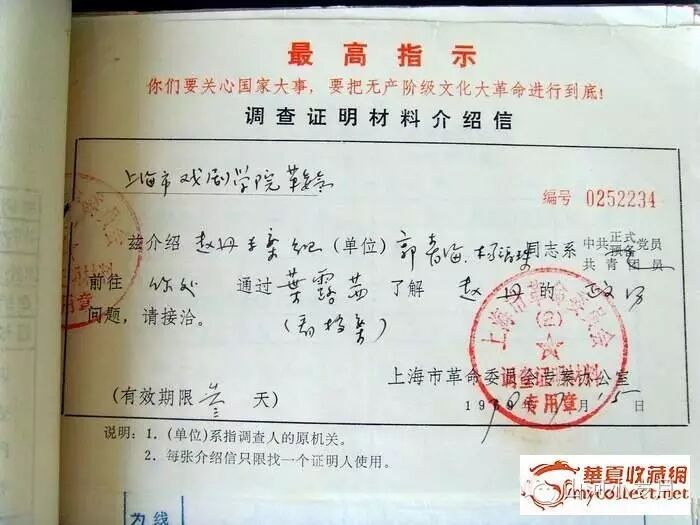 最高指示
你们要关心国家大事，要把无产阶级文化大革命进行到底！
调查证明材料介绍信
上海市戏剧学院革委会
编号 0252234
兹介绍 赵丹专案组 (单位) 郭 海、杨 同志系 中共正式预备党员 共青团员
前往 你处 通过 叶露茜 了解 赵丹的 政治
问题，请接洽。 (看档案)
上海市革命委员会专案办公室
(有效期限 叁 天) 19 月15日
上海市革命委员会
(2)
调查证明材料
专用章
用章
说明：1．(单位)系指调查人的原机关。
2．每张介绍信只限找一个证明人使用。
为线
華夏收藏網
mycollect.net